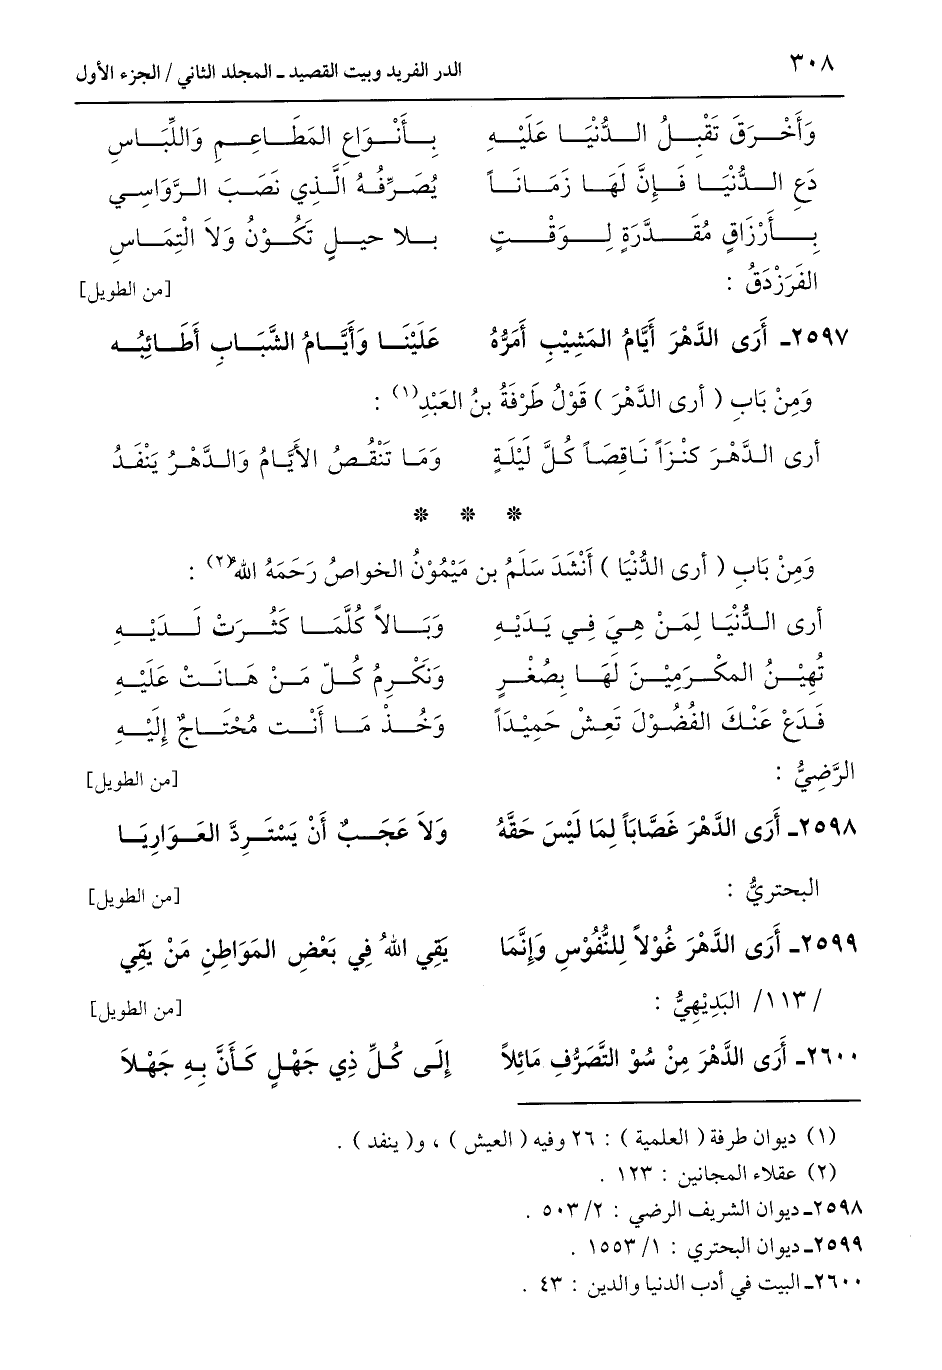 ٣٠٨ الدر الفريد وبيت القصيد ـ المجلد الثاني / الجزء الأول
وَأَخْرَقَ تَقْبَلُ الدُّنْيَا عَلَيْهِ بِأَنْوَاعِ المَطَاعِمِ وَاللِّبَاسِ
دَعِ الدُّنْيَا فَإِنَّ لَهَا زَمَانَاً يُصَرِّفُهُ الَّذِي نَصَبَ الرَّوَاسِي
بِأَرْزَاقٍ مُقَدَّرَةٍ لِوَقْتٍ بِلا حيلٍ تَكُوْنُ وَلاَ الْتِمَاسِ
الفَرَزْدَقُ : [من الطويل]
٢٥٩٧ـ أَرَى الدَّهْرَ أَيَّامُ المَشِيْبِ أَمَرُّهُ عَلَيْنَا وَأَيَّامُ الشَّبَابِ أَطَائِبُه
وَمِنْ بَابِ ( أرى الدَّهْرَ ) قَوْلُ طَرْفَةُ بنُ العَبْدِ(١) :
أرى الدَّهْرَ كَنْزَاً نَاقِصَاً كُلَّ لَيْلَةٍ وَمَا تَنْقُصُ الأَيَّامُ وَالدَّهْرُ يَنْفَدُ
* * *
وَمِنْ بَابِ ( أرى الدُّنْيَا ) أَنْشَدَ سَلَمُ بن مَيْمُوْنُ الخواصُ رَحَمَهُ اللهُ(٢) :
أرى الدُّنْيَا لِمَنْ هِيَ فِي يَدَيْهِ وَبَالاً كُلَّمَا كَثُرَتْ لَدَيْهِ
تُهِيْنُ المكْرَمِيْنَ لَهَا بِصُغْرٍ وَتَكْرِمُ كُلّ مَنْ هَانَتْ عَلَيْهِ
فَدَعْ عَنْكَ الفُضُوْلَ تَعِشْ حَمِيْدَاً وَخُذْ مَا أَنْت مُحْتَاجٌ إِلَيْهِ
الرَّضِيُّ : [من الطويل]
٢٥٩٨ـ أَرَى الدَّهْرَ غَصَّابَاً لِمَا لَيْسَ حَقَّهُ وَلاَ عَجَبٌ أَنْ يَسْتَرِدَّ العَوَارِيَا
البحتريُّ : [من الطويل]
٢٥٩٩ـ أَرَى الدَّهْرَ غُوْلاً لِلنُّفُوْسِ وَإِنَّمَا يَقِي اللهُ فِي بَعْضِ المَوَاطِنِ مَنْ يَقِي
/ ١١٣/ البَدِيْهِيُّ : [من الطويل]
٢٦٠٠ـ أَرَى الدَّهْرَ مِنْ سُوْ التَّصَرُّفِ مَائِلاً إِلَى كُلِّ ذِي جَهْلٍ كَأَنَّ بِهِ جَهْلاَ
(١) ديوان طرفة ( العلمية ) : ٢٦ وفيه ( العيش ) ، و( ينفد ) .
(٢) عقلاء المجانين : ١٢٣ .
٢٥٩٨ـ ديوان الشريف الرضي : ٢/ ٥٠٣ .
٢٥٩٩ـ ديوان البحتري : ١/ ١٥٥٣ .
٢٦٠٠ـ البيت في أدب الدنيا والدين : ٤٣ .